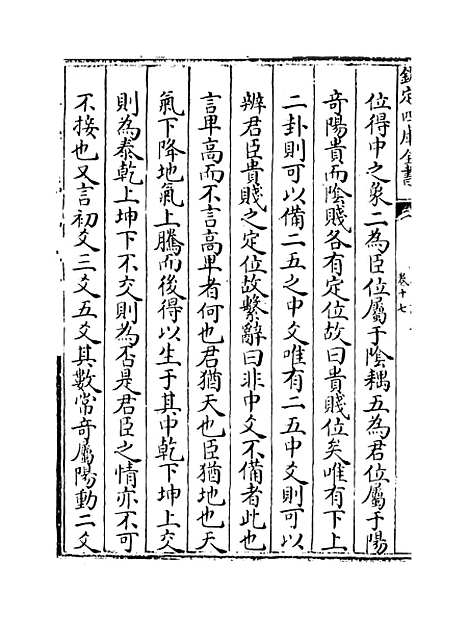 欽定四庫全書
卷十七
位得中之象二為臣位屬于陰耦五為君位屬于陽
奇陽貴而陰賤各有定位故曰貴賤位矣唯有下上
二卦則可以備二五之中爻唯有二五中爻則可以
辨君臣貴賤之定位故繫辭曰非中爻不備者此也
言卑高而不言高卑者何也君猶天也臣猶地也天
氣下降地氣上騰而後得以生于其中乾下坤上交
則為泰乾上坤下不交則為否是君臣之情亦不可
不接也又言初爻三爻五爻其數常奇屬陽動二爻